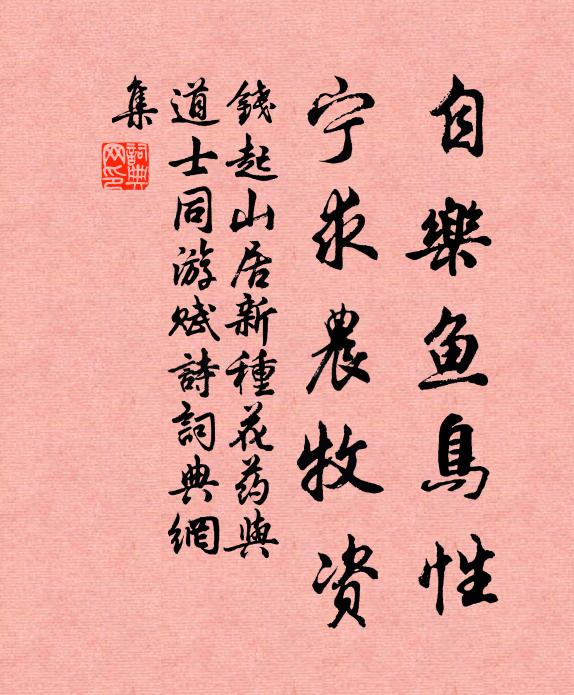 自樂鱼鳥性
宁求農牧资
錢起山居新種花药與
道士同游赋詩詞典網
集
詞典網印